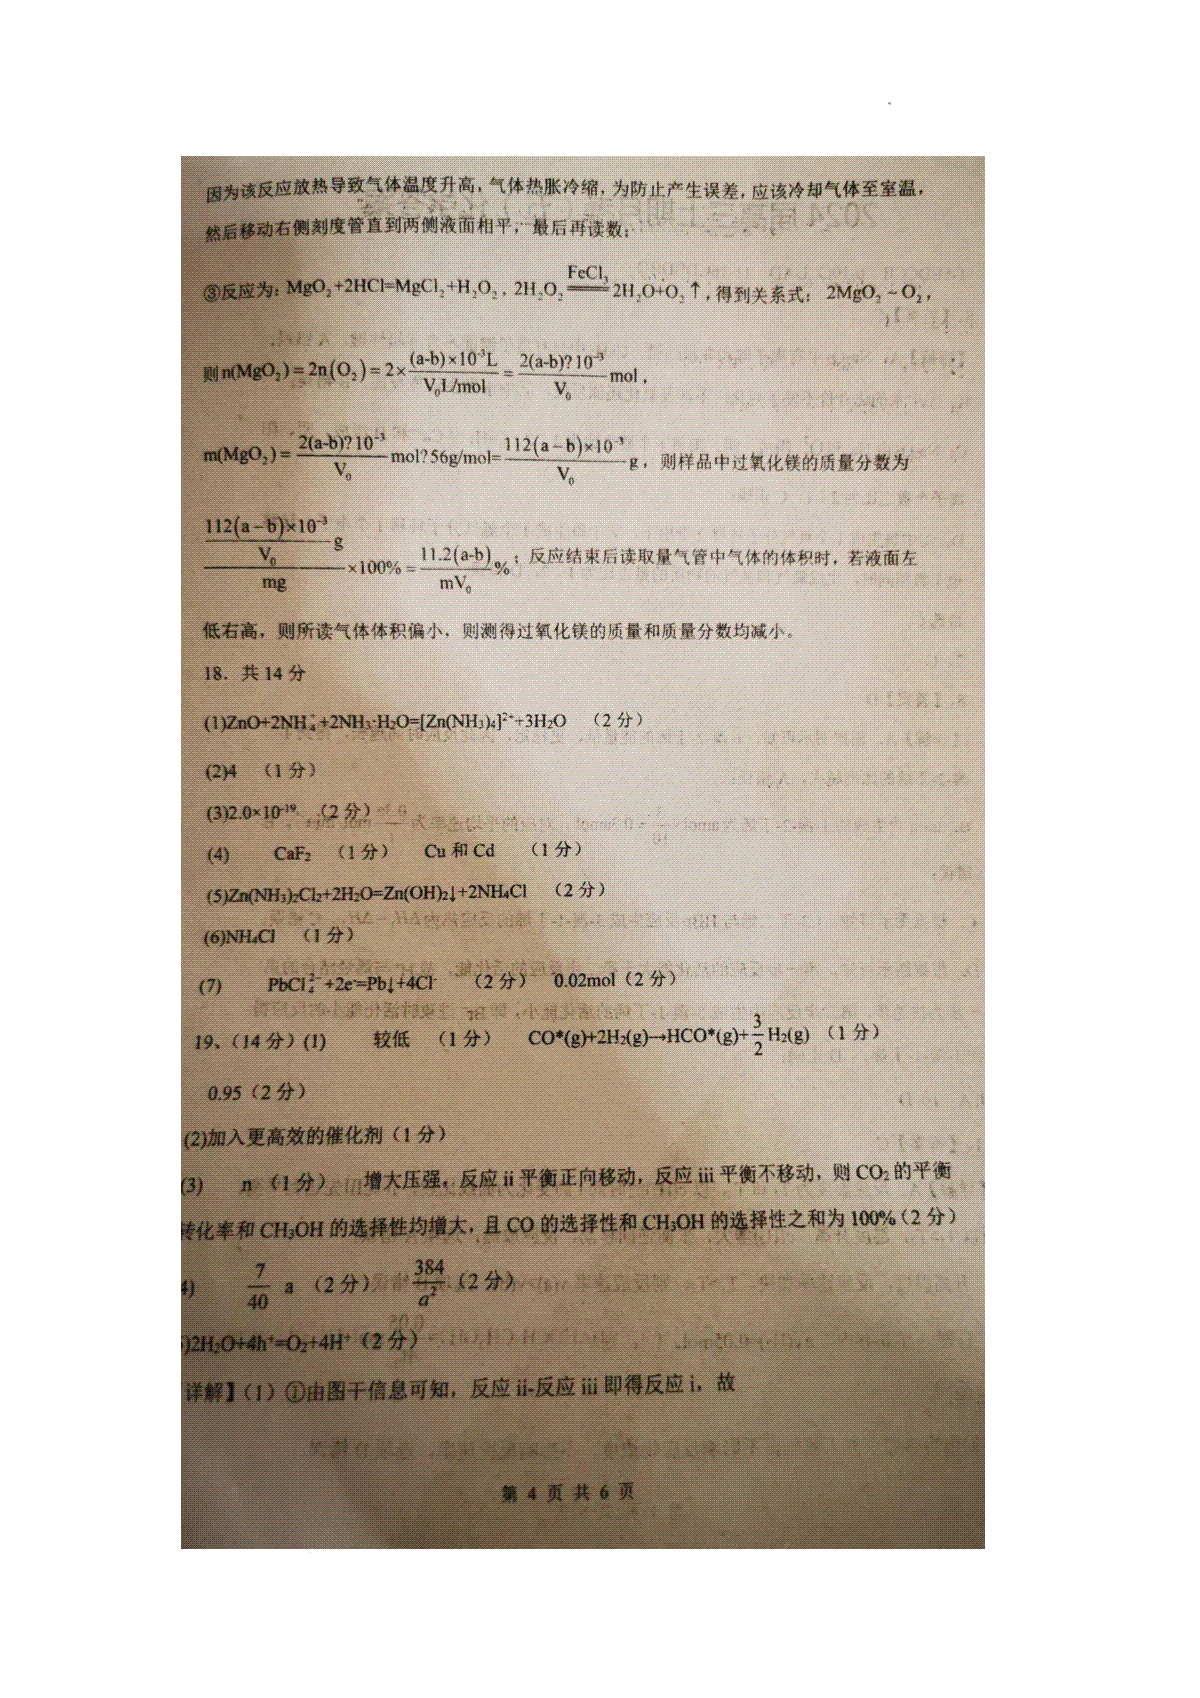 因为该反应放热导致气体温度升高，气体热胀冷缩，为防止产生误差，应该冷却气体至室温，
然后移动右侧刻度管直到两侧液面相平，最后再读数；
③反应为：MgO₂+2HCl=MgCl₂+H₂O₂，2H₂O₂ =FeCl₃= 2H₂O+O₂↑，得到关系式：2MgO₂ ~ O₂，
则n(MgO₂)=2n(O₂)=2×(a-b)×10⁻³L/V₀L/mol=2(a-b)?10⁻³/V₀ mol，
m(MgO₂)=2(a-b)?10⁻³/V₀ mol?56g/mol=112(a-b)×10⁻³/V₀ g，则样品中过氧化镁的质量分数为
(112(a-b)×10⁻³/V₀ g)/mg×100%=11.2(a-b)/mV₀ %；反应结束后读取量气管中气体的体积时，若液面左
低右高，则所读气体体积偏小，则测得过氧化镁的质量和质量分数均减小。
18．共 14 分
(1)ZnO+2NH₄⁺+2NH₃·H₂O=[Zn(NH₃)₄]²⁺+3H₂O （2 分）
(2)4 （1 分）
(3)2.0×10⁻¹⁹ （2 分）
(4) CaF₂ （1 分） Cu 和 Cd （1 分）
(5)Zn(NH₃)₂Cl₂+2H₂O=Zn(OH)₂↓+2NH₄Cl （2 分）
(6)NH₄Cl （1 分）
(7) PbCl₄²⁻+2e⁻=Pb↓+4Cl⁻ （2 分） 0.02mol（2 分）
19、（14 分）(1) 较低 （1 分） CO*(g)+2H₂(g)→HCO*(g)+3/2H₂(g) （1 分）
0.95（2 分）
(2)加入更高效的催化剂（1 分）
(3) n （1 分） 增大压强，反应 ii 平衡正向移动，反应 iii 平衡不移动，则 CO₂ 的平衡
转化率和 CH₃OH 的选择性均增大，且 CO 的选择性和 CH₃OH 的选择性之和为 100%（2 分）
4) 7/40 a （2 分） 384/a²（2 分）
)2H₂O+4h⁺=O₂+4H⁺（2 分）
详解】（1）①由图干信息可知，反应 ii-反应 iii 即得反应 i，故
第 4 页 共 6 页